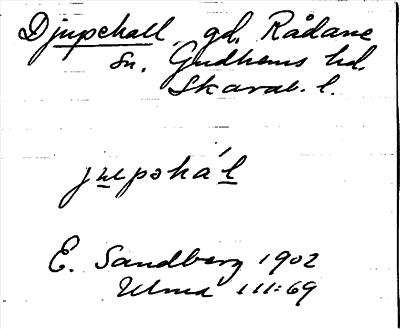 Djupehall, gd, Rådane
sn. Gudhems hd.
Skarab. l.
jupəhál
E. Sandberg 1902
Ulma 111:69